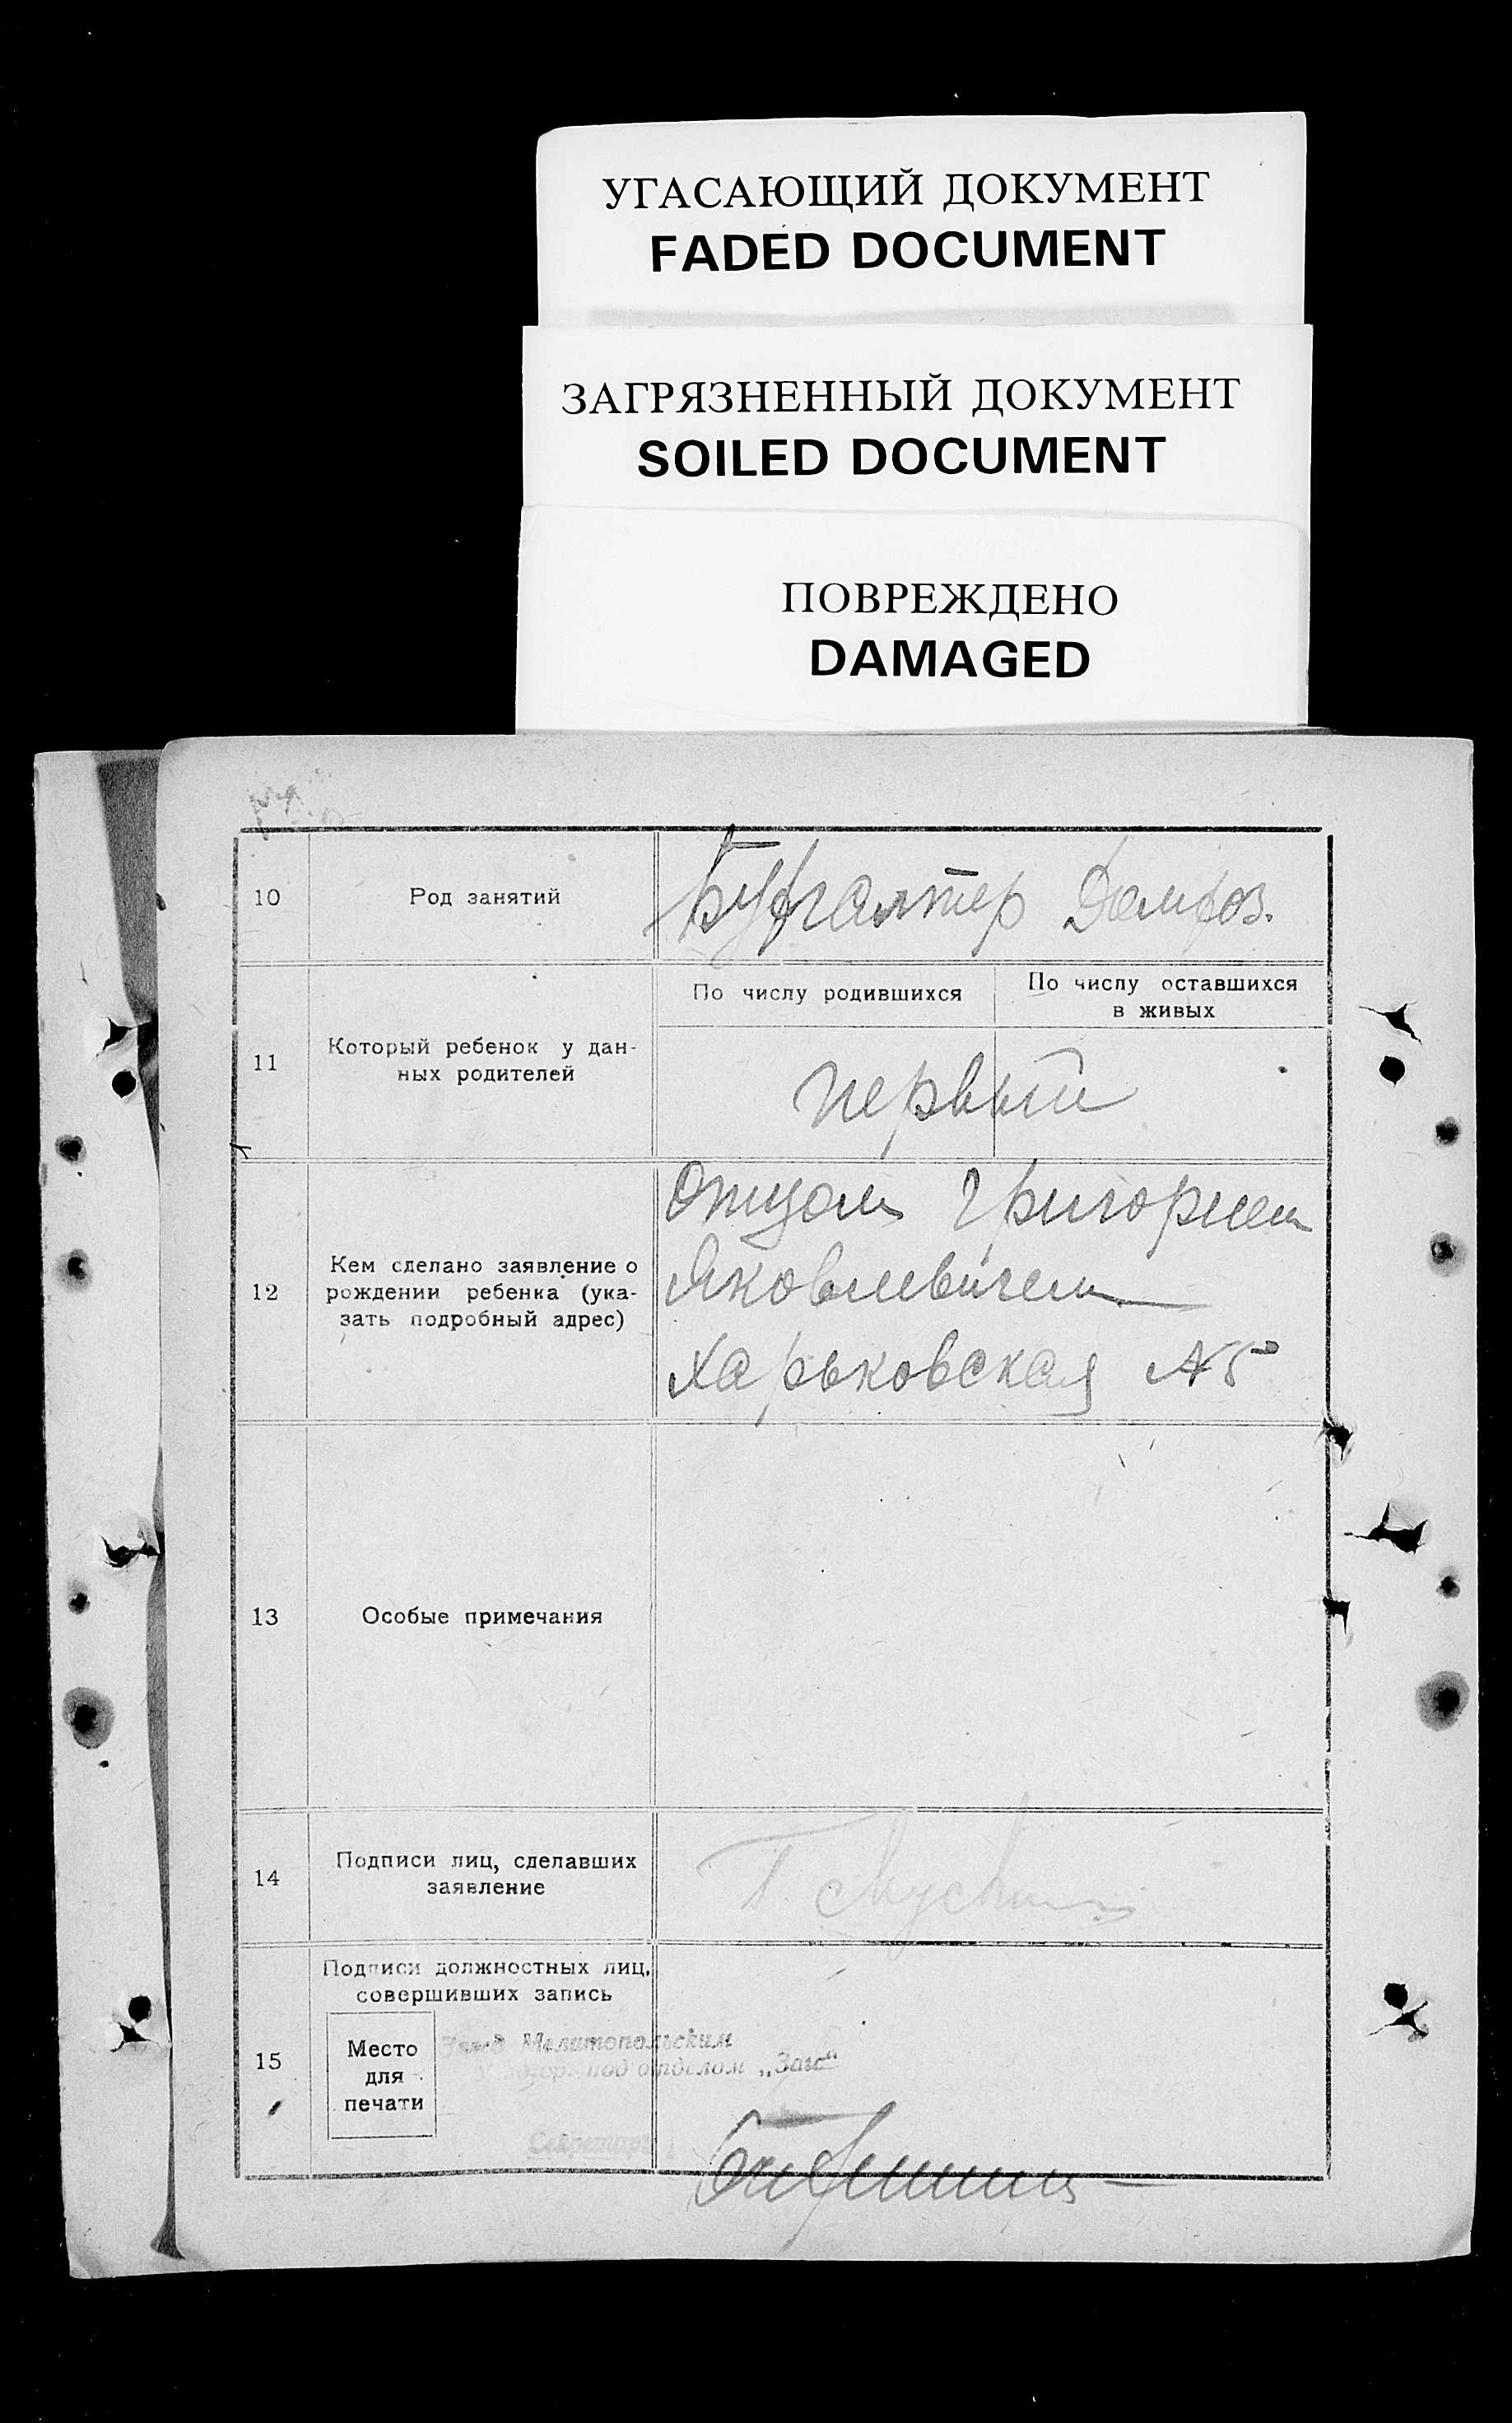 УГАСАЮЩИЙ ДОКУМЕНТ
FADED DOCUMENT
ЗАГРЯЗНЕННЫЙ ДОКУМЕНТ
SOILED DOCUMENT
ПОВРЕЖДЕНО
DAMAGED
10
Род занятий
Бухгалтер
11
Который ребенок у дан-
ных родителей
По числу родившихся
По числу оставшихся
в живых
первый
12
Кем сделано заявление о
рождении ребенка (ука-
зать подробный адрес)
Отцом Григорием
Яковлевичем
Харьковская №5
13
Особые примечания
14
Подписи лиц, сделавших
заявление
15
Подписи должностных лиц,
совершивших запись
Место
для
печати
Мелитопольским
под отделом „Загс“
Секретарь